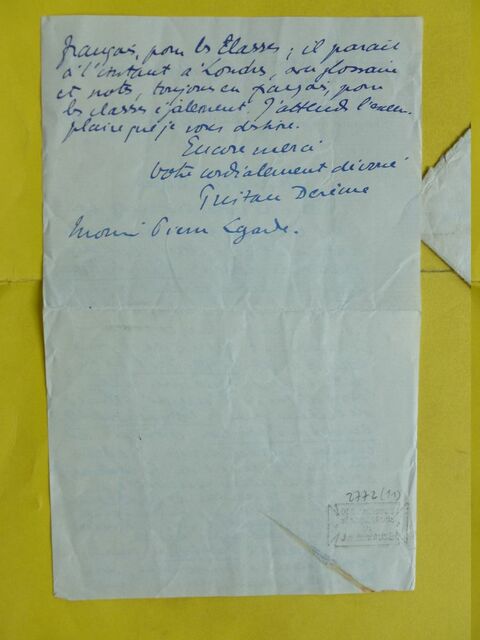 français, pour les classes ; il paraît
à l'instant à Londres, avec glossaire
et notes, toujours en français, pour
les classes également. J'attends l'exem-
plaire que je vous destine.
Encore merci
Votre cordialement dévoué
Tristan Derème
Monsieur Pierre Lagarde.
2772 (11)